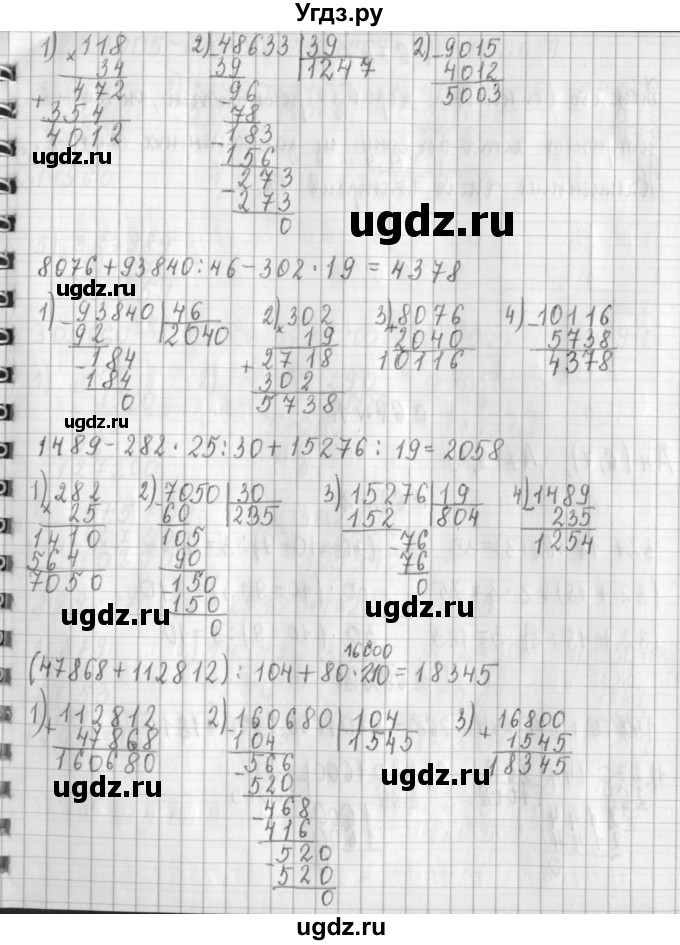 Угдз.ру
1) × 118   2) - 48633 | 39   2) - 9015
34   39   1247   4012
472   96   5003
+ 354   - 78
4012   - 183
ugdz.ru   156
- 273
- 273
0
ugdz.ru
8076 + 93840 : 46 - 302 · 19 = 4378
1) - 93840 | 46   2) × 302   3) + 8076   4) - 10116
92   2040   19   2040   5738
- 184   + 2718   10116   4378
184   302
0   5738
ugdz.ru   ugdz.ru
1489 - 282 · 25 : 30 + 15276 : 19 = 2058
1) × 282   2) - 7050 | 30   3) 15276 | 19   4) - 1489
25   60   235   152   804   235
1410   105   - 76   1254
564   90   76
7050   - 150   0
150
0
ugdz.ru   ugdz.ru
16800
(47868 + 112812) : 104 + 80 · 210 = 18345
1) + 112812   2) - 160680 | 104   3) + 16800
47868   104   1545   1545
160680   - 566   18345
ugdz.ru   520   ugdz.ru
- 468
416
- 520
- 520
0
ugdz.ru   ugdz.ru
ugdz.ru